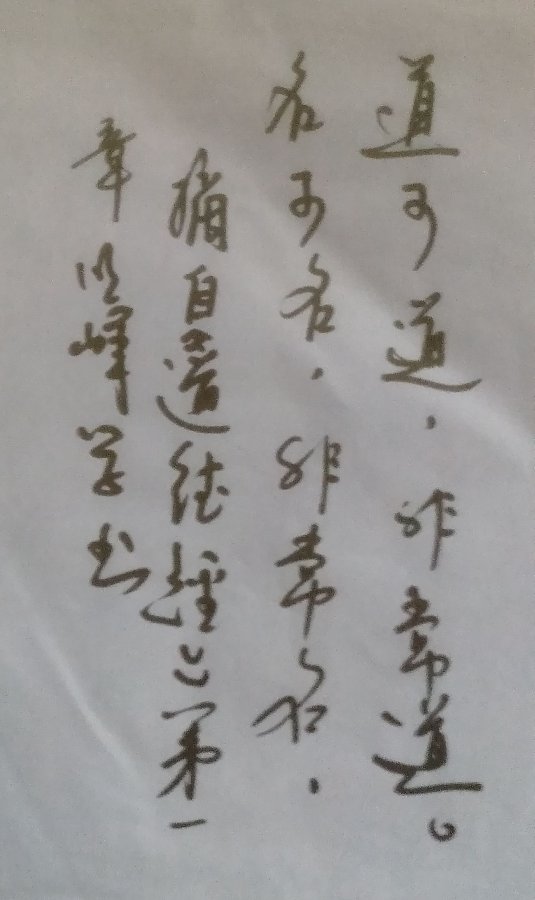 道可道，非常道。
名可名，非常名，
摘自道德经之第一
章 峰学书